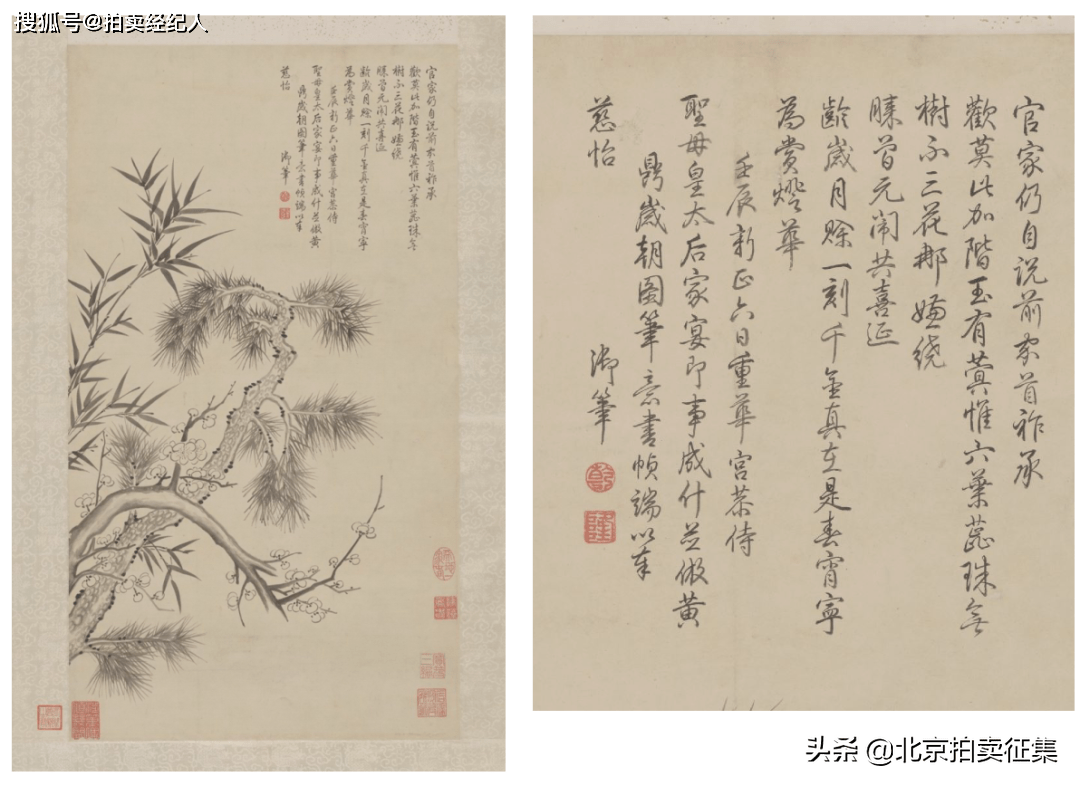 搜狐号@拍卖经纪人
官家仍自説前首祚承
歡莫此加階玉有蓂惟六葉蕊珠無
樹不三花那嫌繞
膝曾元鬧共喜延
齡歲月賒一刻千金真在是春宵寧
為賞燈華
壬辰新正六日重華宮恭侍
聖母皇太后家宴即事成什並倣黃
鼎歲朝圖筆意書幀端以奉
慈怡 御筆
官家仍自説前首祚承
歡莫此加階玉有蓂惟六葉蕊珠無
樹不三花那嫌繞
膝曾元鬧共喜延
齡歲月賒一刻千金真在是春宵寧
為賞燈華
壬辰新正六日重華宮恭侍
聖母皇太后家宴即事成什並倣黃
鼎歲朝圖筆意書幀端以奉
慈怡 御筆
乾
隆
头条 @北京拍卖征集